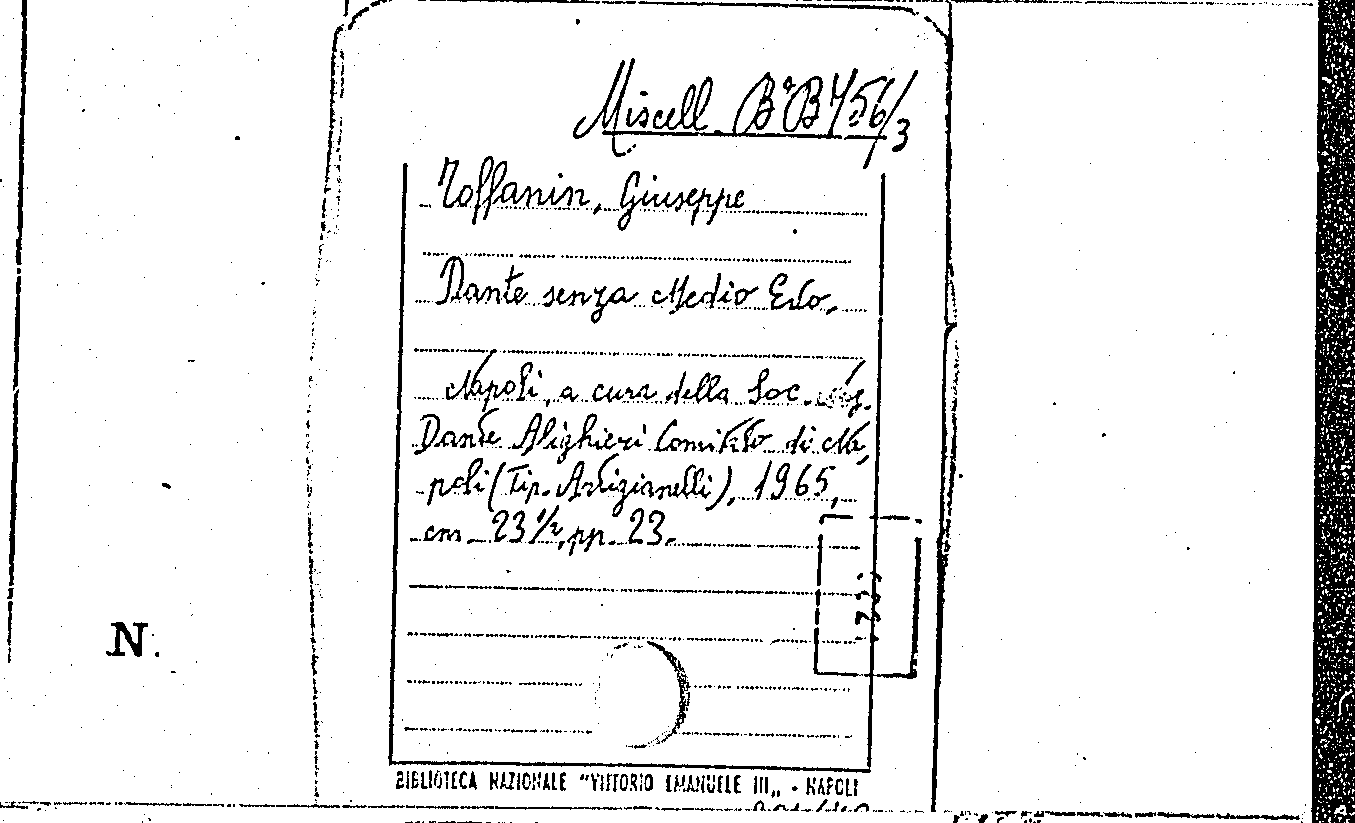 Miscell. Bª B 456/3
Toffanin, Giuseppe
Dante senza Medio Evo.
Napoli, a cura della Soc.
Dante Alighieri Comitato di Na,
poli (Tip. Artigianelli), 1965,
cm. 23 ½, pp. 23.
N.
BIBLIOTECA NAZIONALE "VITTORIO EMANUELE III„ - NAPOLI